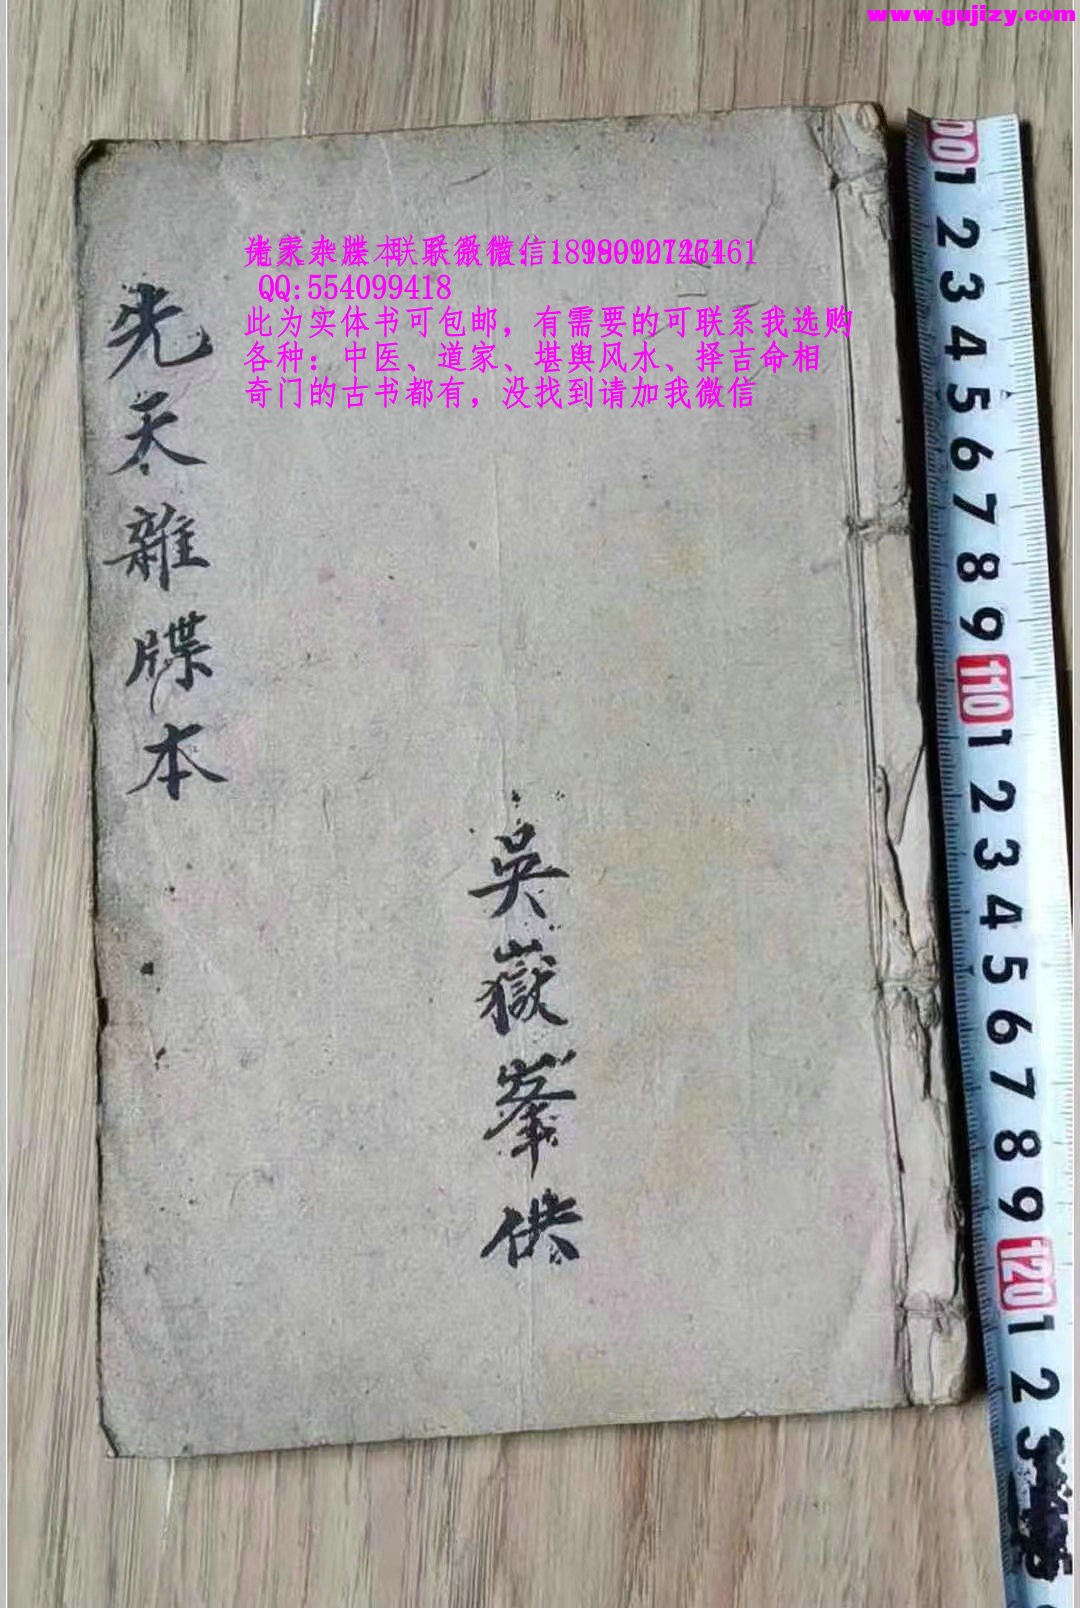 www.gujizy.com
QQ:554099418
此为实体书可包邮，有需要的可联系我选购
各种：中医、道家、堪舆风水、择吉命相
奇门的古书都有，没找到请加我微信
先天雜牒本
吳嶽峯供
1
2
3
4
5
6
7
8
9
110
1
2
3
4
5
6
7
8
9
120
1
2
3